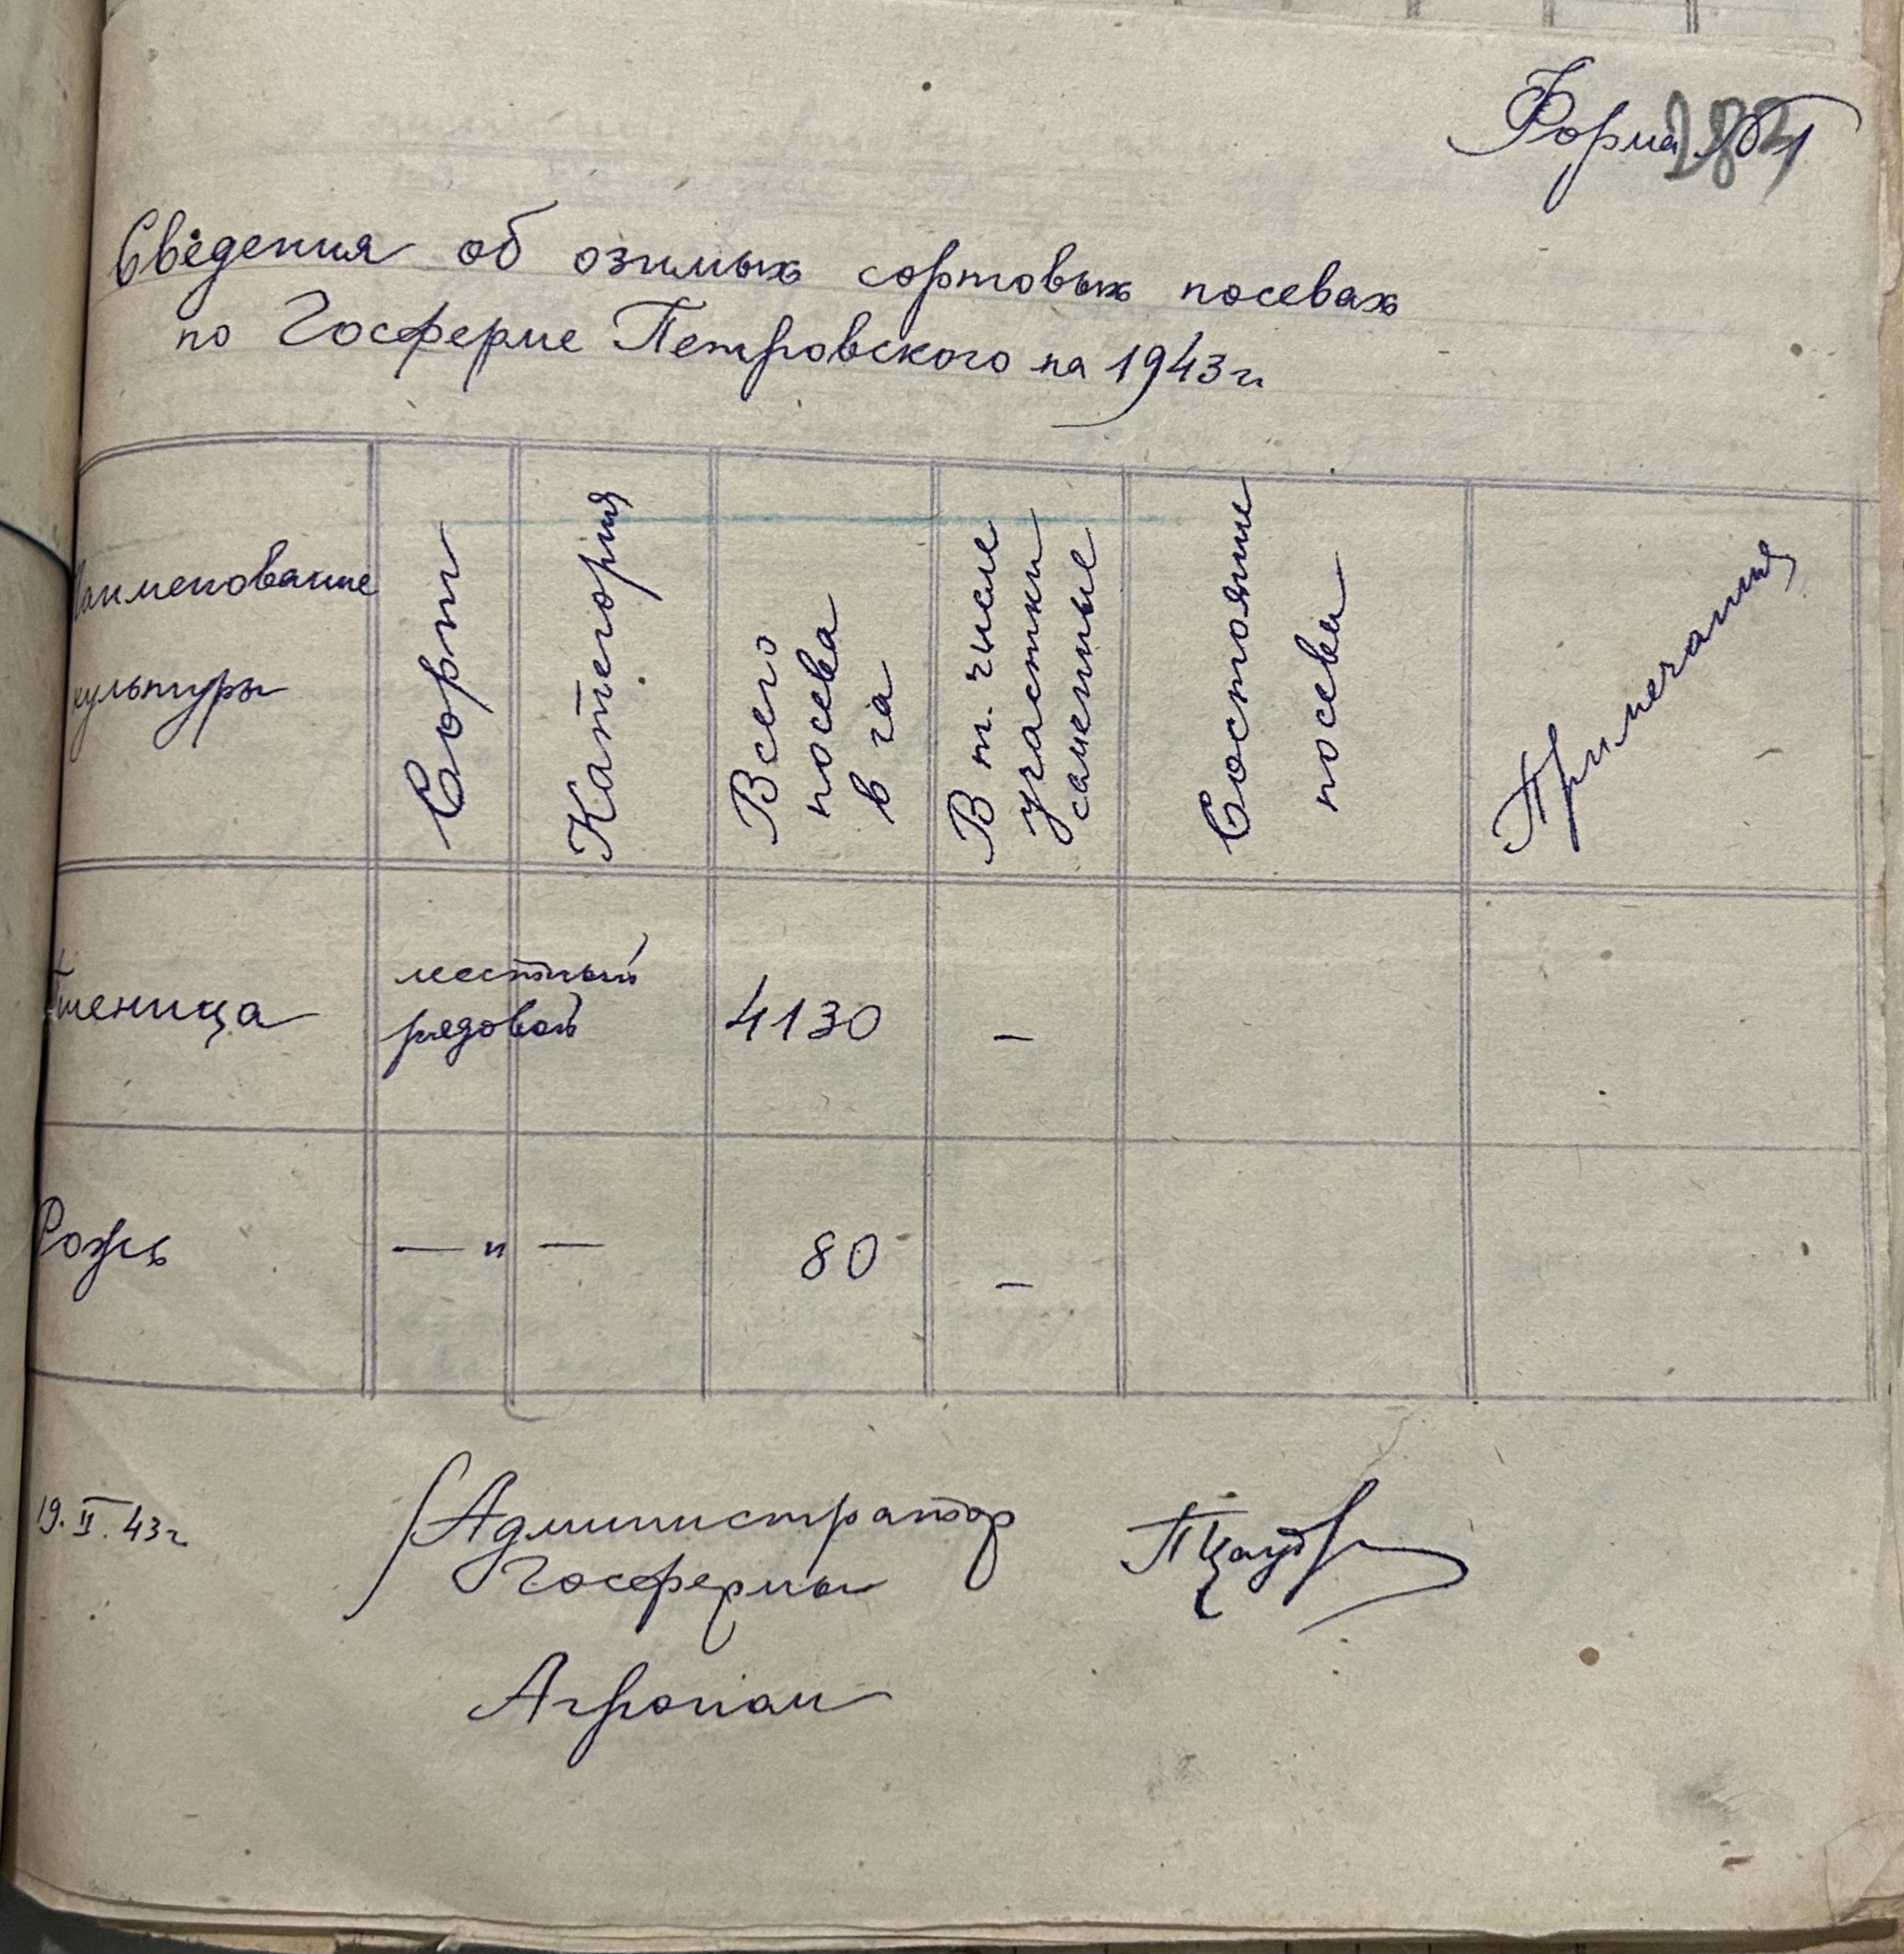 Форма №1
283
Сведения об озимых сортовых посевах
по Госферме Петровского на 1943 г.
Наименование культуры
Сорт
Категория
Всего посева в га
В т. числе участки семенные
Состояние посева
Примечания
Пшеница местный рядовой 4130 –
Рожь — " — 80 –
19.II.43 г.
Администратор
Госфермы
Агроном